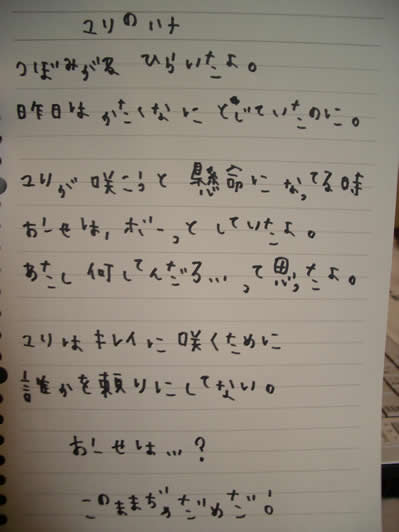 ユリのハナ
つぼみが又 ひらいたよ。
昨日は かたくなに とじていたのに。
ユリが 咲こうと 懸命に なってる時
おーせは, ボーっと していたよ。
あたし 何してんだろ... って思ったよ。
ユリは キレイに 咲くために
誰かを頼りにしてない。
おーせは...?
このままぢゃだめだ!